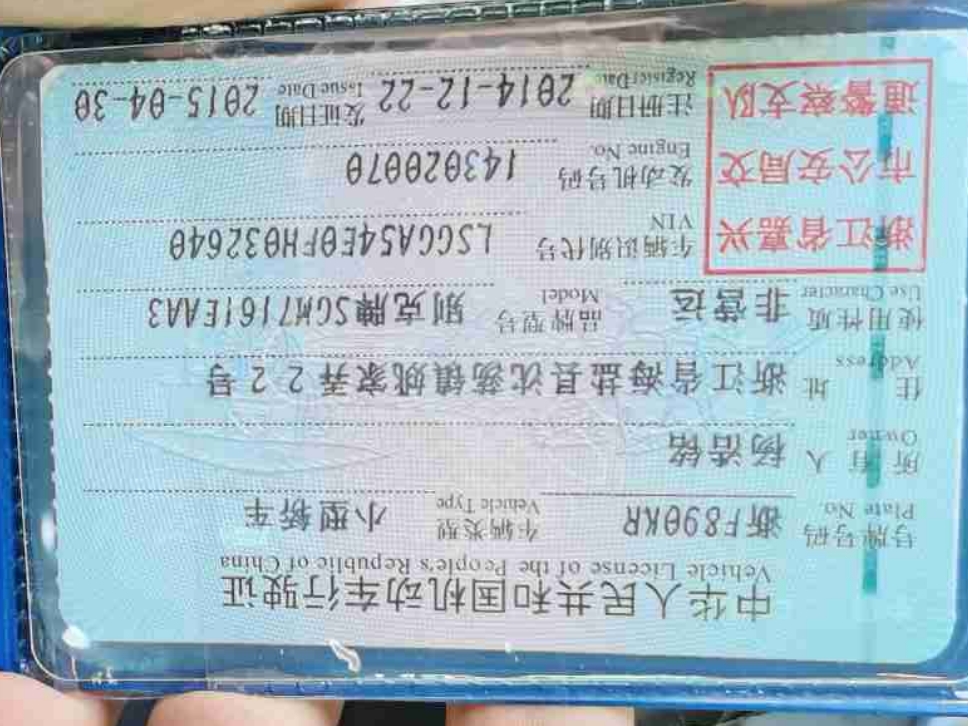 中华人民共和国机动车行驶证
Vehicle License of the People's Republic of China
号牌号码 浙F890KR 车辆类型 小型轿车
Plate No. Vehicle Type
所有人 杨浩铭
Owner
住址 浙江省海盐县沈荡镇姚家弄22号
Address
使用性质 非营运 品牌型号 别克牌SGM7161EAA3
Use Character Model
浙江省嘉兴 车辆识别代号 LSGGA54E0FH032640
VIN
市公安局交 发动机号码 143020070
Engine No.
通警察支队 注册日期 2014-12-22 发证日期 2015-04-30
Register Date Issue Date